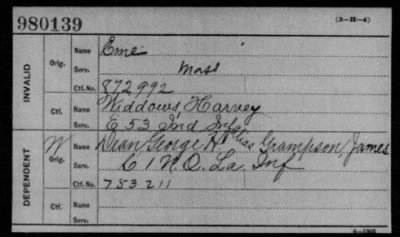 980139
(3-H-4)
INVALID
Orig.
Name Eme
Serv. Mass
Ctf. No. 872992
Ctf.
Name Widdows, Harvey
Serv. E 53 Ind Inf
DEPENDENT
W
Orig.
Name Dean George H alias Grampson, James
Serv. C 1 N.O. La. Inf
Ctf. No. 753211
Ctf.
Name
Serv.